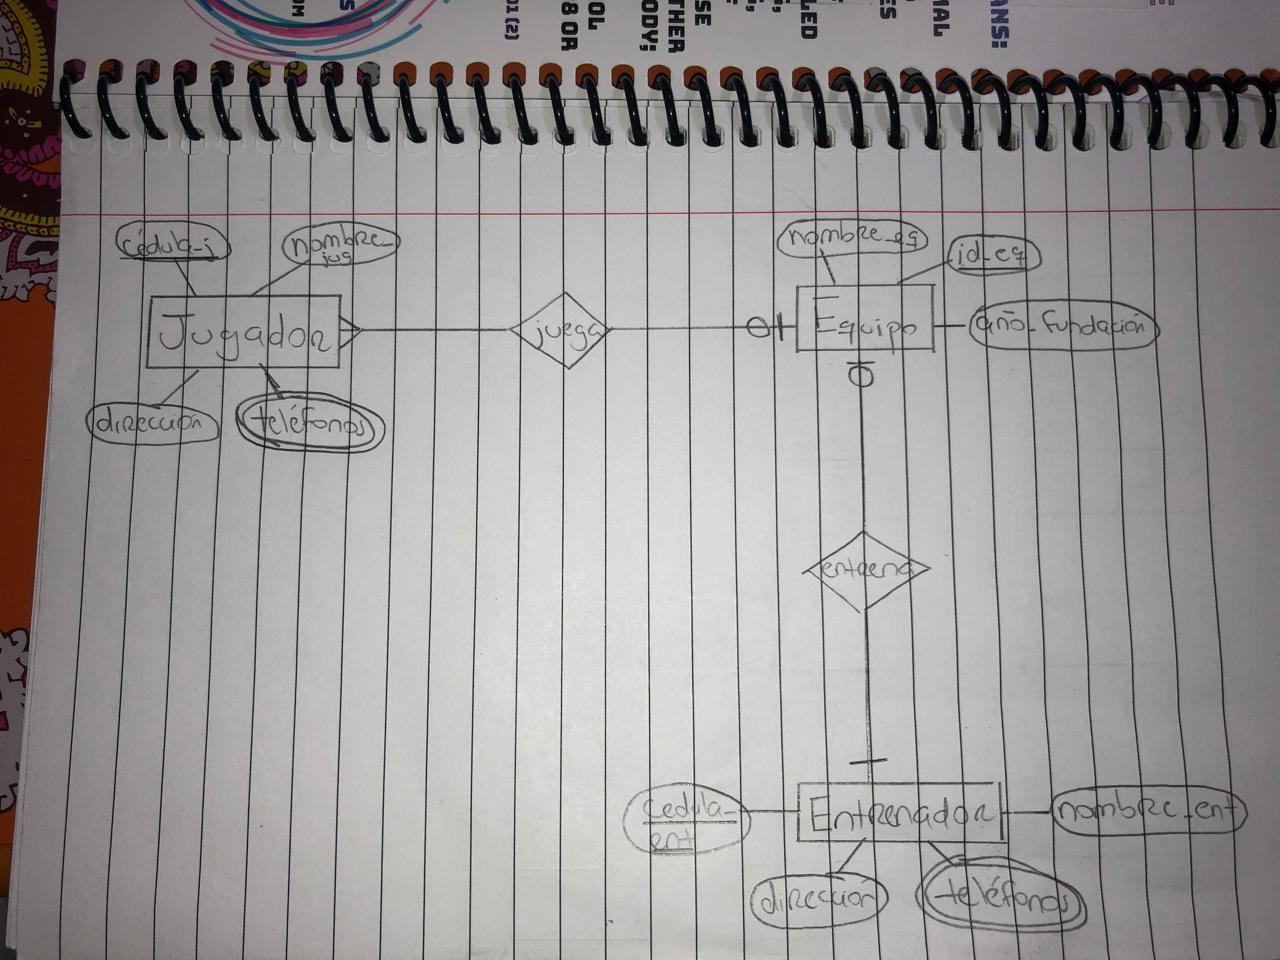 cédula_j
nombre_
jug
Jugador
dirección
teléfonos
juega
nombre_eq
id_eq
Equipo
año_fundación
entrena
Cedula_
ent
Entrenador
nombre_ent
dirección
teléfonos
OM
S
01 (2)
8 OR
OL
ODY;
THER
SE
LED
ES
MAL
ANS: